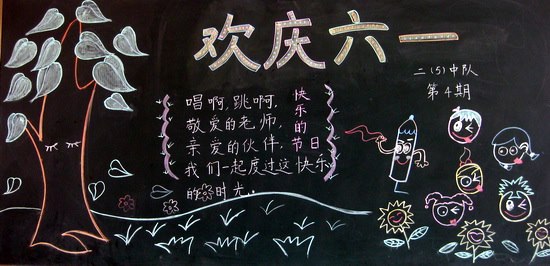 欢庆六一
二(5)中队
第4期
快乐的节日
唱啊,跳啊,
敬爱的老师,
亲爱的伙伴,
我们一起度过这快乐
的时光.